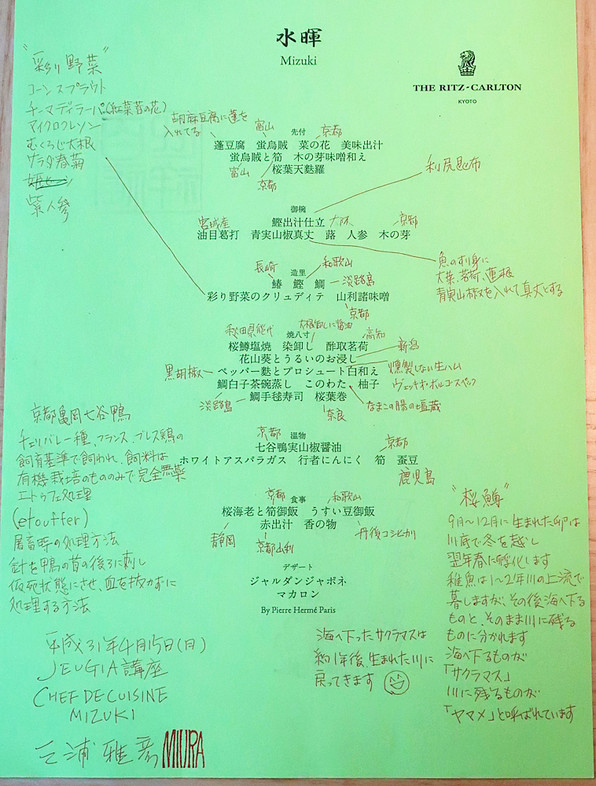 水暉
Mizuki
THE RITZ-CARLTON
KYOTO
"彩り野菜"
コーンスプラウト
マイクロクレソン
むくろじ大根
サラダ春菊
紫人参
胡麻豆腐に蓬を
入れてる
富山
先付
京都
蓬豆腐 蛍烏賊 菜の花 美味出汁
蛍烏賊と筍 木の芽味噌和え
桜葉天麩羅
富山
京都
利尻昆布
御椀
宮城産
鰹出汁仕立
京都
油目葛打 青実山椒真丈 蕗 人参 木の芽
魚のすり身に
大葉、茗荷、蓮根
青実山椒を入れて真丈とする
長崎
造里
和歌山
淡路島
鰆 鰹 鯛
彩り野菜のクリュディテ 山利諸味噌
京都
秋田県能代
焼八寸
大根おろしに醤油
高知
桜鱒塩焼 染卸し 酢取茗荷
新潟
花山葵とうるいのお浸し
黒胡椒
ペッパー麩とプロシュート白和え
燻製しない生ハム
鯛白子茶碗蒸し このわた 柚子
なまこの腸の塩蔵
淡路島
鯛手毬寿司 桜葉巻
奈良
京都亀岡七谷鴨
チェリバレー種、フランス、ブレス鶏の
飼育基準で飼われ、飼料は
有機栽培のもののみで完全無薬
エトゥフェ処理
(etouffer)
屠畜時の処理方法
針を鴨の首の後ろに刺し
仮死状態にさせ、血を抜かずに
処理する方法
京都
温物
京都
七谷鴨実山椒醤油
ホワイトアスパラガス 行者にんにく 筍 蚕豆
鹿児島
京都
食事
和歌山
桜海老と筍御飯 うすい豆御飯
赤出汁 香の物
静岡
京都山利
丹後コシヒカリ
デザート
ジャルダンジャポネ
マカロン
By Pierre Hermé Paris
"桜鱒"
9月〜12月に生まれた卵は
川底で冬を越し
翌年春に孵化します
稚魚は1〜2年川の上流で
暮しますが、その後海へ下る
ものと、そのまま川に残る
ものに分かれます
海へ下るものが
「サクラマス」
川に残るものが
「ヤマメ」と呼ばれています
海へ下ったサクラマスは
約1年後、生まれた川に
戻ってきます
平成31年4月15日(月)
JEUGIA講座
CHEF DE CUISINE
MIZUKI
三浦雅彦 MIURA